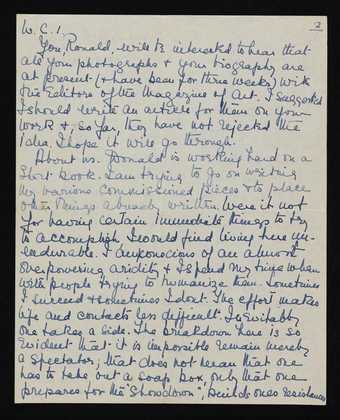 2
W.C.1.
You, Ronald, will be interested to hear that
all your photographs & your biography are
at present (& have been for three weeks) with
the Editors of the Magazine of Art. I suggested
I should write an article for them on your
work &, so far, they have not rejected the
idea. I hope it will go through.
About us. Donald is working hard on a
short book. I am trying to go on writing
my various commissioned pieces & to place
other things already written. Were it not
for having certain immediate things to try
to accomplish I would find living here un-
endurable. I am conscious of an almost
overpowering aridity & I spend my time when
with people trying to humanize them. Sometimes
I succeed & sometimes I don't. The effort makes
life and contacts less difficult. Inevitably
one takes a side. The breakdown here is so
evident that it is impossible remain merely
a spectator; that does not mean that one
has to take out a soap box, only that one
prepares for the "showdown", builds ones resistances